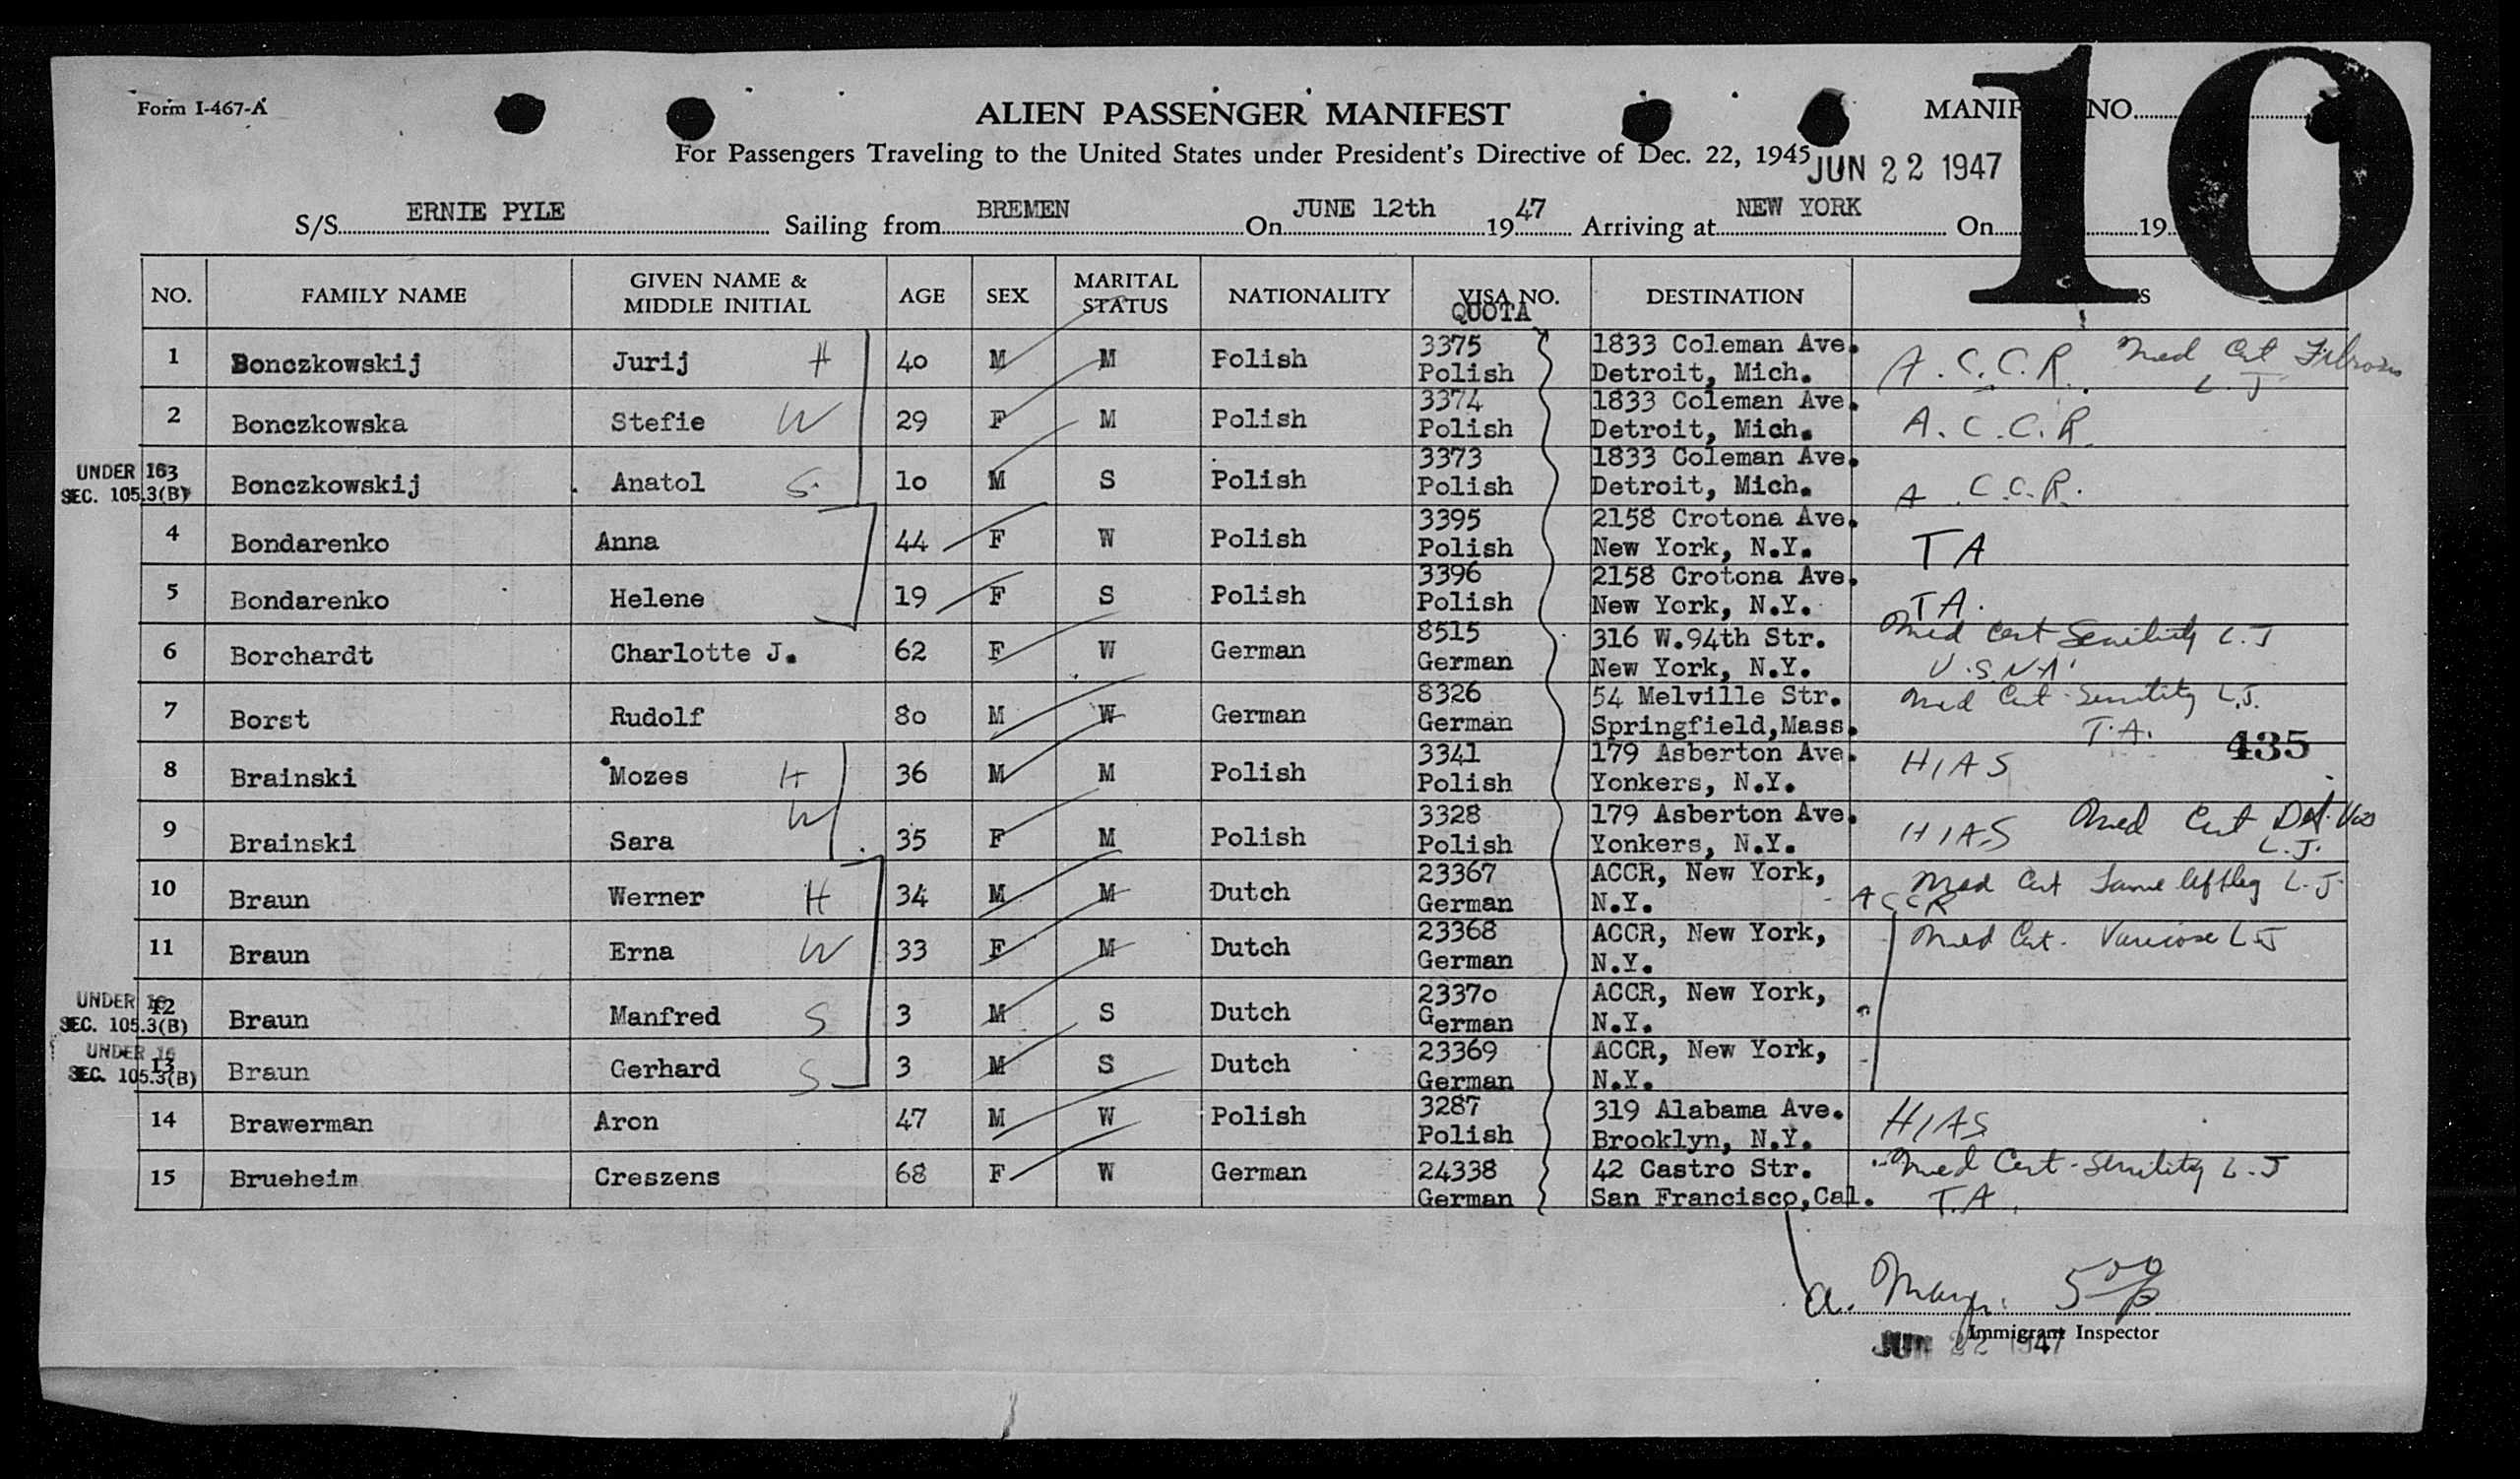 Form I-467-A
ALIEN PASSENGER MANIFEST
MANIF NO. 10
For Passengers Traveling to the United States under President's Directive of Dec. 22, 1945
JUN 22 1947
S/S ERNIE PYLE Sailing from BREMEN On JUNE 12th 1947 Arriving at NEW YORK On 19
NO. FAMILY NAME GIVEN NAME & MIDDLE INITIAL AGE SEX MARITAL STATUS NATIONALITY VISA NO. QUOTA DESTINATION S
1 Bonczkowskij Jurij H 40 M M Polish 3375 Polish 1833 Coleman Ave. Detroit, Mich. A.C.C.R. Med Cert L.J
2 Bonczkowska Stefie W 29 F M Polish 3374 Polish 1833 Coleman Ave. Detroit, Mich. A.C.C.R.
UNDER 16 SEC. 105.3(B) 3 Bonczkowskij Anatol S. 10 M S Polish 3373 Polish 1833 Coleman Ave. Detroit, Mich. A.C.C.R.
4 Bondarenko Anna 44 F W Polish 3395 Polish 2158 Crotona Ave. New York, N.Y. TA
5 Bondarenko Helene 19 F S Polish 3396 Polish 2158 Crotona Ave. New York, N.Y. TA.
6 Borchardt Charlotte J. 62 F W German 8515 German 316 W.94th Str. New York, N.Y. Med Cert Senility L.J U.S.N.A.
7 Borst Rudolf 80 M W German 8326 German 54 Melville Str. Springfield,Mass. Med Cert Senility L.J. T.A.
435
8 Brainski Mozes H 36 M M Polish 3341 Polish 179 Asberton Ave. Yonkers, N.Y. HIAS
9 Brainski Sara W 35 F M Polish 3328 Polish 179 Asberton Ave. Yonkers, N.Y. HIAS Med Cert Def. Vis L.J.
10 Braun Werner H 34 M M Dutch 23367 German ACCR, New York, N.Y. ACCR Med Cert Lame left leg L.J.
11 Braun Erna W 33 F M Dutch 23368 German ACCR, New York, N.Y. Med Cert. Varicose L.J
UNDER 16 SEC. 105.3(B) 12 Braun Manfred S 3 M S Dutch 23370 German ACCR, New York, N.Y.
UNDER 16 SEC. 105.3(B) 13 Braun Gerhard S 3 M S Dutch 23369 German ACCR, New York, N.Y.
14 Brawerman Aron 47 M W Polish 3287 Polish 319 Alabama Ave. Brooklyn, N.Y. HIAS
15 Brueheim Creszens 68 F W German 24338 German 42 Castro Str. San Francisco,Cal. Med Cert-Senility L.J T.A.
a.
Immigrant Inspector
JUN 22 1947